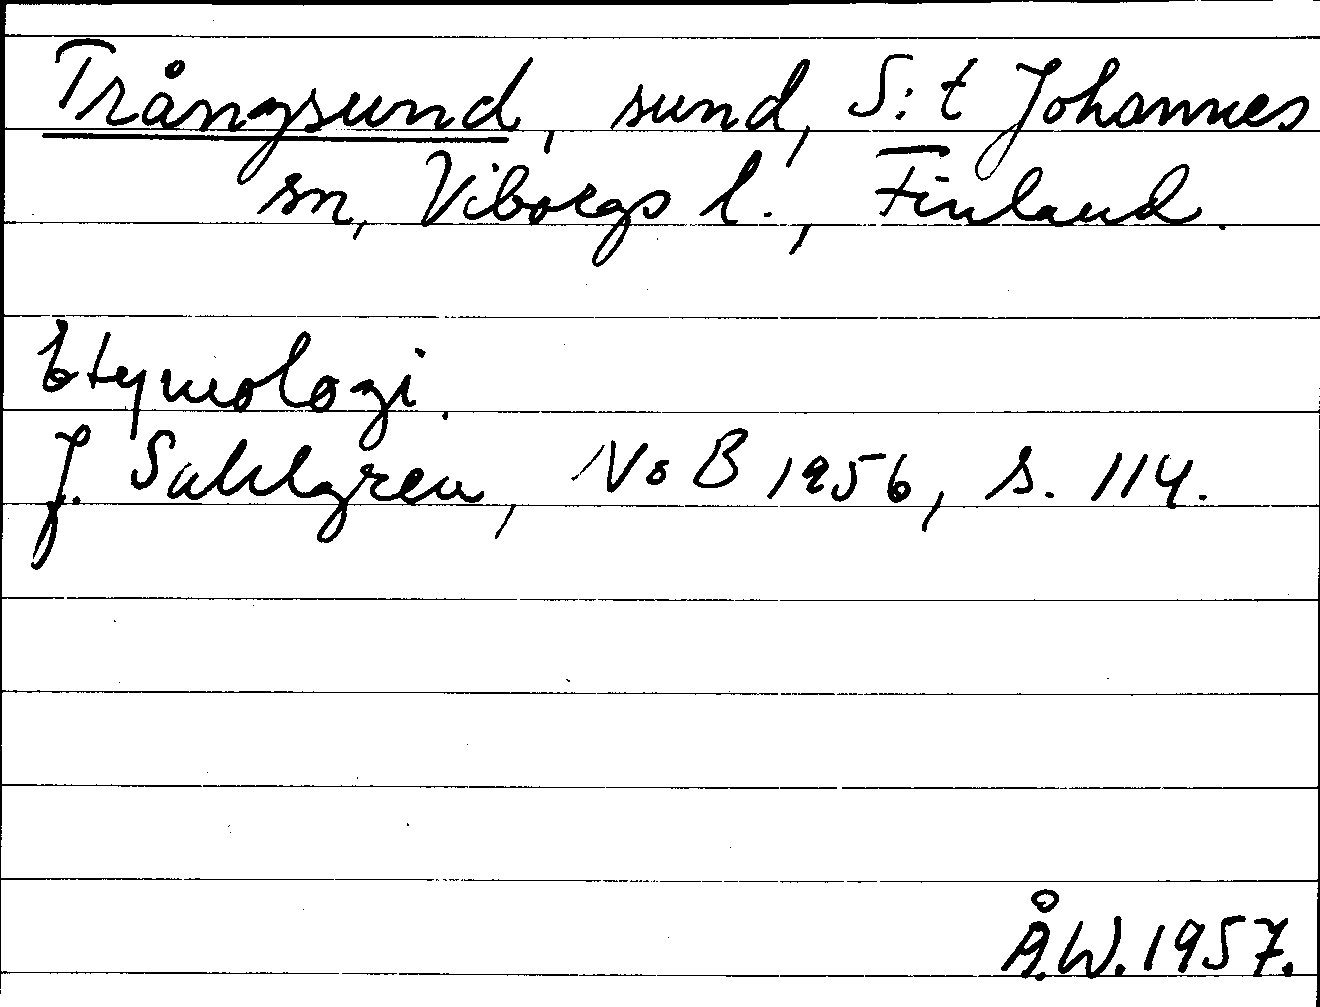 Trångsund, sund, S:t Johannes
sn, Viborgs l., Finland.
Etymologi.
J. Sahlgren, NoB 1956, s. 114.
Å.W. 1957.